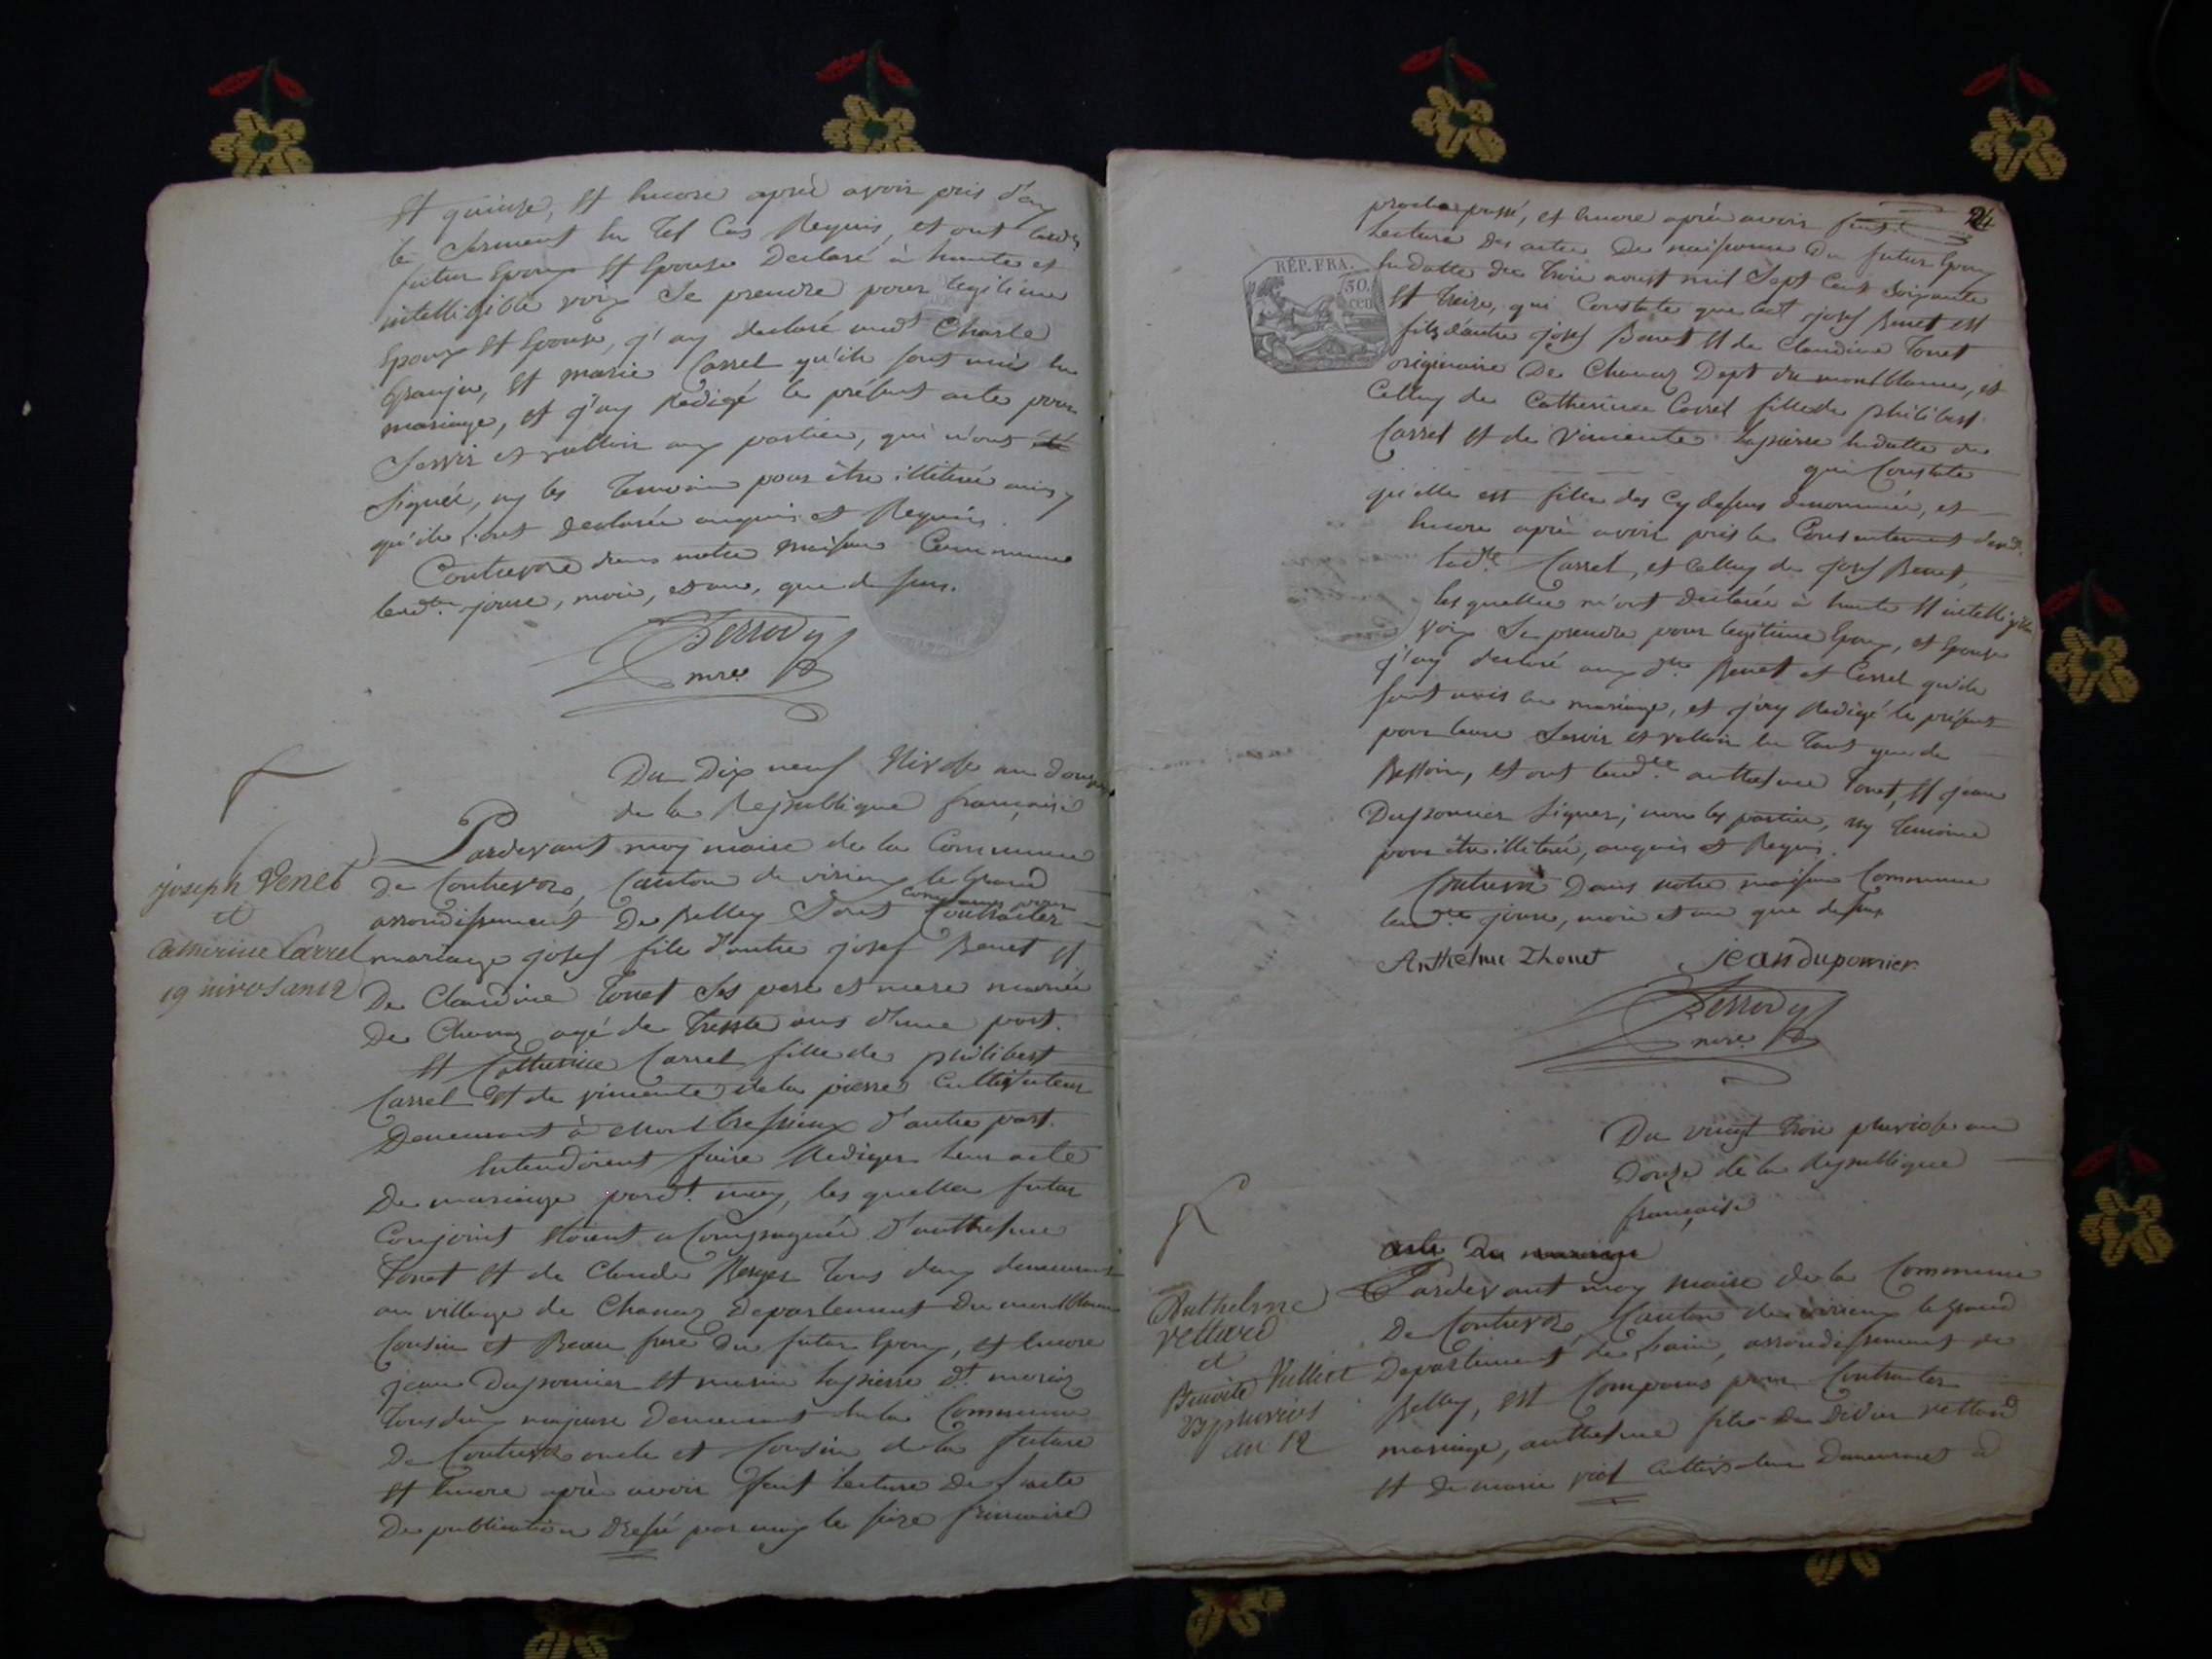 Et quinze, Et encore après avoir pris d'eux
le serment en tel cas Requis, et ont lesds
futur Epoux Et Epouse Declaré à haute et
intelligible voix se prendre pour legitime
Epoux Et Epouse, j'ay declaré aud Charle
Et marie Carrel qu'ils sont unis en
mariage, et j'ay Redigé le présent acte pour
servir et valloir aux parties, qui n'ont
signées, ny les temoins pour être illiterés ainsy
qu'ils l'ont declarés enquis et Requis.
Contrevoz dans notre maison Commune
lesd. jour, mois, et an, que dessus.
Perrody
mre
Du Dix neuf Nivose an Douze
de la Republique française
joseph Venet
et
Catherine Carrel
19 nivos an 12
Pardevant moy maire de la Commune
De Contrevoz, Canton de virieux le Grand
arrondissement De Belley Sont comparus pour Contracter
mariage josef fils d'autre josef Benet Et
De Claudine Tonet ses pere et mere mariés
De Chanaz agé de Trente ans d'une part.
Et Catherine Carrel fille de philibert
Carrel Et de vincente de la pierre Cultivateur
Demeurant à Montbressieux d'autre part.
Entendirent faire Rediger leur acte
De mariage pard.t moy, les quelles futur
Conjoint Etoient acCompagnée d'anthelme
Tonet Et de Claude Berger Tous deux demeurant
au village de Chanaz departement du montblanc
Cousin et Beau frere du futur Epoux, et encore
jean Dupornier Et marin lapierre dt. marin
Tous deux majeurs Demeurant en la Commune
De Contrevoz oncle et Cousin de la future
Et encore après avoir fait lecture De l'acte
De publication Dressé par moy le seize frimaire
24
proche passé, et encore après avoir fait
Lecture des actes De naissance Du futur Epoux
RÉP. FRA.
50.
cen
En datte du trois aoust mil Sept Cent Soixante
Et treize, qui Constate que led.t josef Benet est
fils d'autre josef Benet Et de Claudine Tonet
originaire De Chanaz Dept du montblanc, et
Celluy de Catherine Carrel fille de philibert
Carrel Et de Vincente Lapierre En datte du
qui Constate
qu'elle est fille des Cy dessus denommés, et
encore après avoir pris le Consentement de
lad.te Carrel, et Celluy de josef Benet,
les quelles m'ont declarée à haute Et intelligible
voix Se prendre pour legitime Epoux, et Epouse
j'ay declaré aux d.ts Benet et Carrel qu'ils
sont unis en mariage, et j'ay Redigé le présent
pour leur Servir et valloir en tant que de
Bessoin, et ont lesd.ts anthelme Tonet, Et jean
Dupornier Signer, non les parties, ny temoins
pour être illiterés, enquis et Requis
Contrevoz Dans notre maison Commune
lesd.ts jour, mois et an que dessus
Anthelme Thonet jean dupornier
Perrody
mre
Du vingt trois pluviose an
Douze de la Republique
française
acte Du mariage
Anthelme
vettard
et
Benoite Vulliet
23 pluvios
an 12
Pardevant moy maire de la Commune
De Contrevoz, Canton de virieux le Grand
Departement de l'ain, arrondissement de
Belley, est Comparus pour Contracter
mariage, anthelme fils de Didier vettard
Et De marie viol Cultivateur Demeurant à